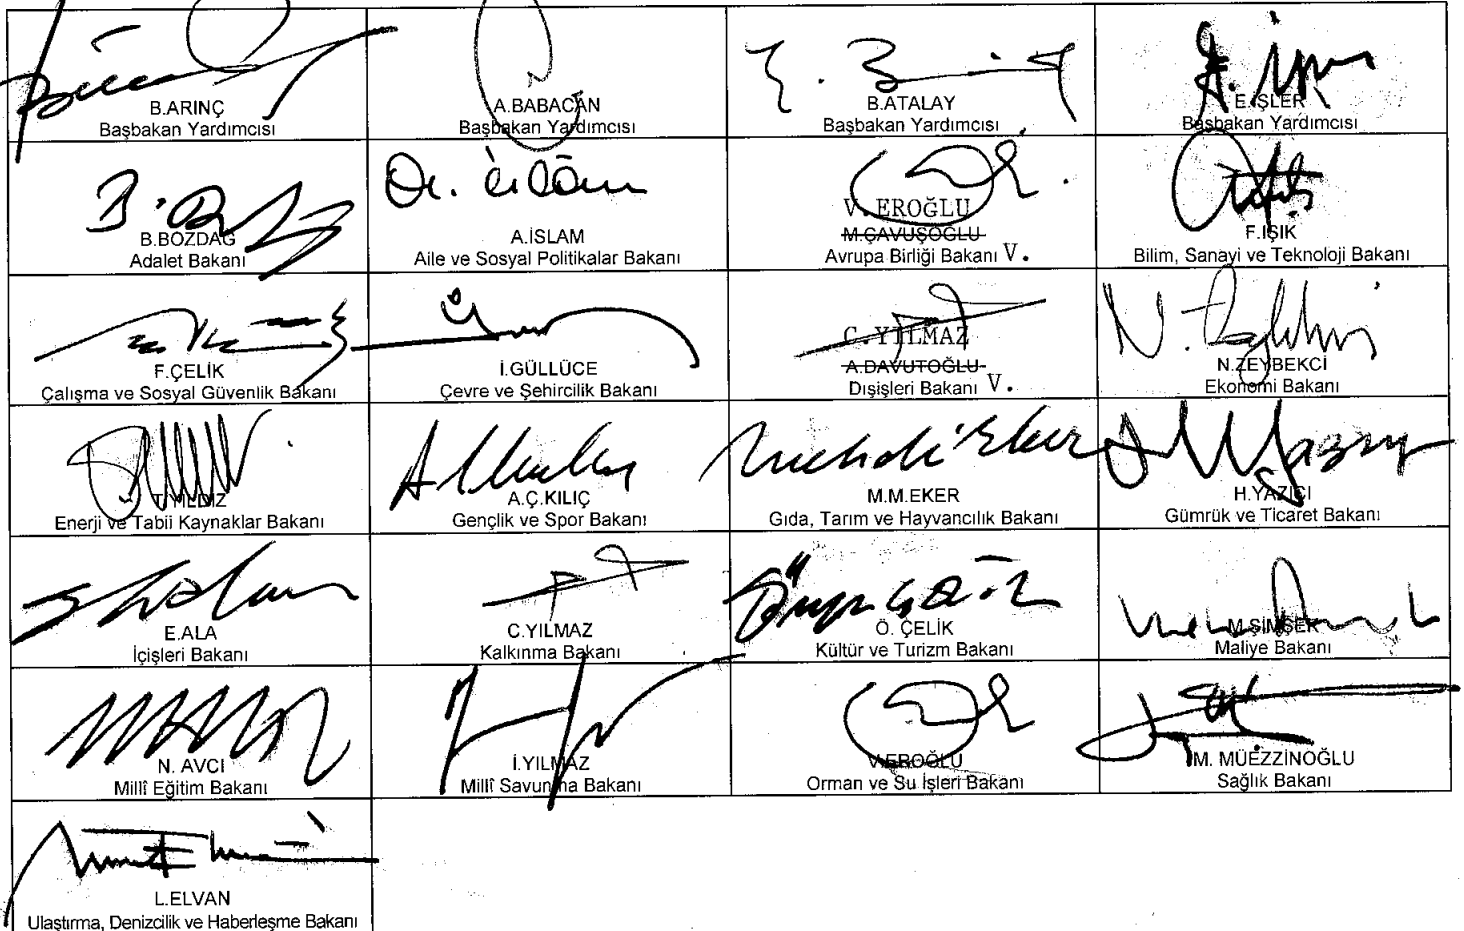 B.ARINÇ
Başbakan Yardımcısı
A.BABACAN
Başbakan Yardımcısı
B.ATALAY
Başbakan Yardımcısı
E.İŞLER
Başbakan Yardımcısı
B.BOZDAĞ
Adalet Bakanı
A.İSLAM
Aile ve Sosyal Politikalar Bakanı
V.EROĞLU
M.ÇAVUŞOĞLU
Avrupa Birliği Bakanı V.
F.IŞIK
Bilim, Sanayi ve Teknoloji Bakanı
F.ÇELİK
Çalışma ve Sosyal Güvenlik Bakanı
İ.GÜLLÜCE
Çevre ve Şehircilik Bakanı
C.YILMAZ
A.DAVUTOĞLU
Dışişleri Bakanı V.
N.ZEYBEKCİ
Ekonomi Bakanı
T.YILDIZ
Enerji ve Tabii Kaynaklar Bakanı
A.Ç.KILIÇ
Gençlik ve Spor Bakanı
M.M.EKER
Gıda, Tarım ve Hayvancılık Bakanı
H.YAZICI
Gümrük ve Ticaret Bakanı
E.ALA
İçişleri Bakanı
C.YILMAZ
Kalkınma Bakanı
Ö. ÇELİK
Kültür ve Turizm Bakanı
M.ŞİMŞEK
Maliye Bakanı
N. AVCI
Millî Eğitim Bakanı
İ.YILMAZ
Millî Savunma Bakanı
V.EROĞLU
Orman ve Su İşleri Bakanı
M. MÜEZZİNOĞLU
Sağlık Bakanı
L.ELVAN
Ulaştırma, Denizcilik ve Haberleşme Bakanı